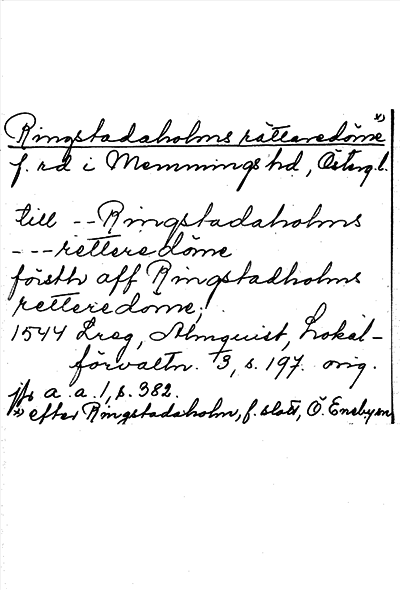 x)
Ringstadaholms rättaredöme
f. rd i Memmings hd, Östergl.
till -- Ringstadaholms
--- rettere döme
försth aff Ringstadholms
rettere döme;
1544 Lreg, Almquist, Lokal-
förvaltn. 1/3, s. 197. orig.
jfr a.a. 1, s. 382.
x) efter Ringstadaholm, f. slott, Ö. Eneby sn